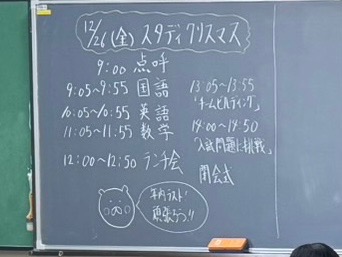 12/26(金) スタディクリスマス
9:00 点呼
9:05~9:55 国語
10:05~10:55 英語
11:05~11:55 数学
12:00~12:50 ランチ会
13:05~13:55
「チームビルディング」
14:00~14:50
「入試問題に挑戦」
閉会式
年内ラスト
頑張ろう!!